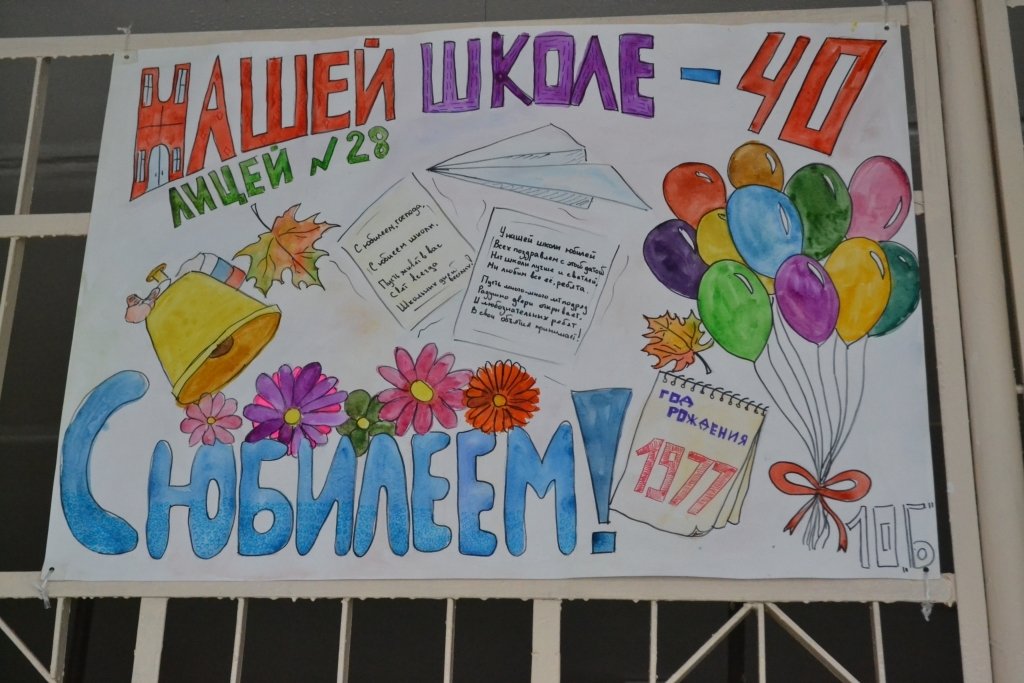 НАШЕЙ ШКОЛЕ - 40
ЛИЦЕЙ №28
С юбилеем, господа,
С юбилеем школы,
Пусть живёт в вас
Свет всегда
Школьных дней весёлых!
У нашей школы юбилей
Всех поздравляем с этой датой
Нет школы лучше и светлей,
Мы любим все её, ребята
Пусть много-много лет подряд
Радушно двери открывает
И любознательных ребят
В свои объятья принимает!
С ЮБИЛЕЕМ!
ГОД
РОЖДЕНИЯ
1977
10„Б"